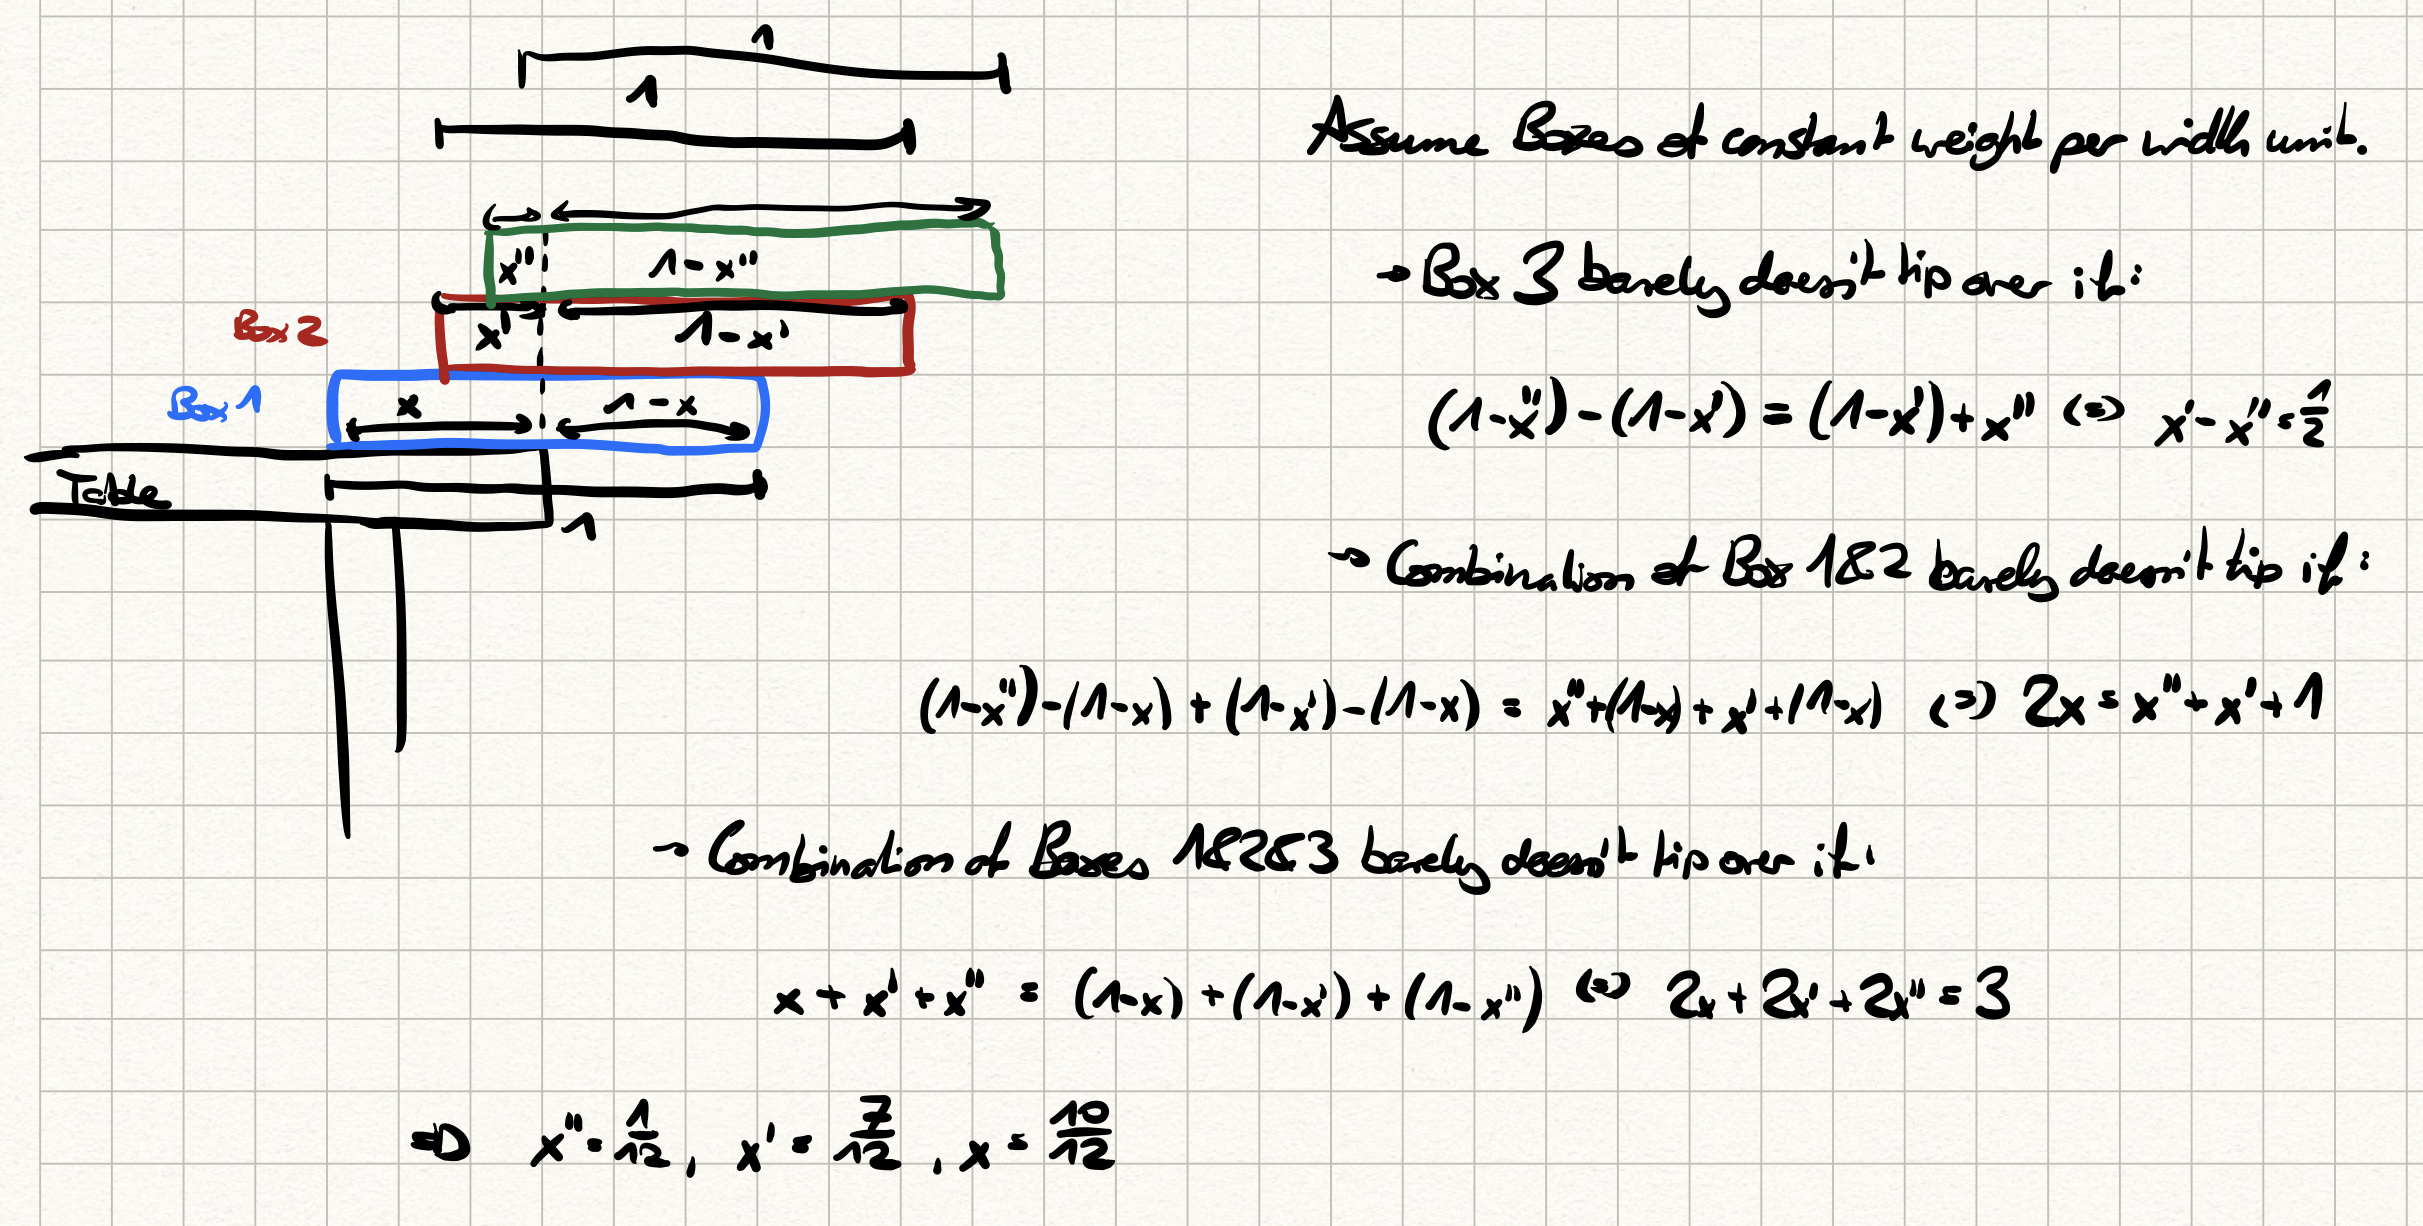 1
1
Assume Boxes of constant weight per width unit.
x'' 1-x''
→ Box 3 barely doesn't tip over if:
Box 2 x' 1-x'
Box 1 x 1-x
(1-x'')-(1-x') = (1-x')+x'' (=) x'-x''=1/2
Table
1
→ Combination of Box 1&2 barely doesn't tip if:
(1-x'')-(1-x)+(1-x')-(1-x) = x''+(1-x)+x'+(1-x) (=) 2x=x''+x'+1
→ Combination of Boxes 1&2&3 barely doesn't tip over if:
x+x'+x'' = (1-x)+(1-x')+(1-x'') (=) 2x+2x'+2x''=3
=> x''=1/12, x'=7/12, x=10/12